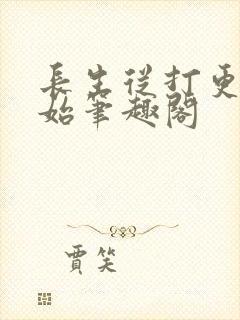 長生從打更
始筆趣閣
賈笑